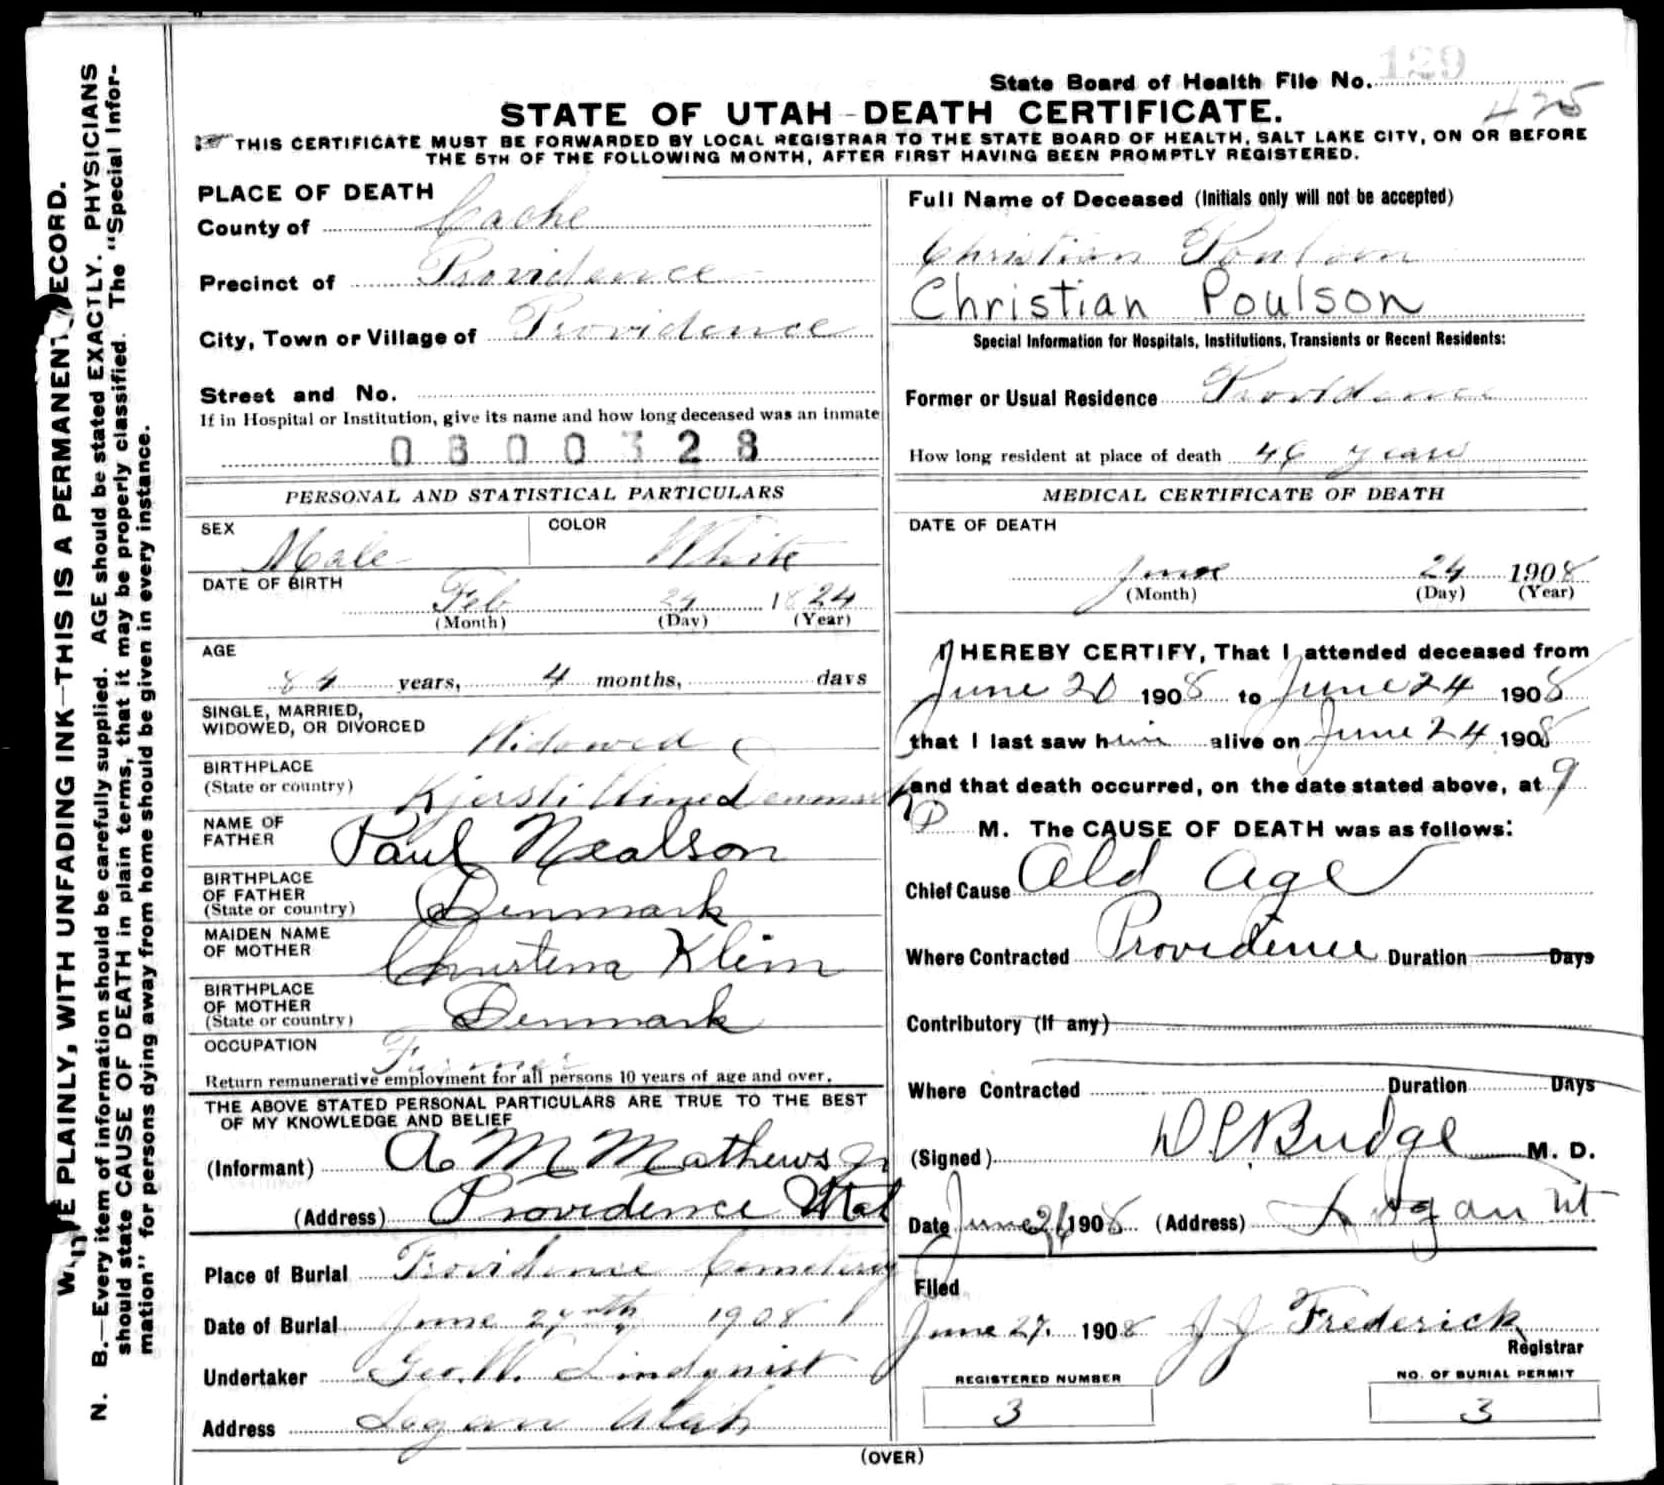 State Board of Health File No. 129
425
STATE OF UTAH-DEATH CERTIFICATE.
THIS CERTIFICATE MUST BE FORWARDED BY LOCAL REGISTRAR TO THE STATE BOARD OF HEALTH, SALT LAKE CITY, ON OR BEFORE
THE 5TH OF THE FOLLOWING MONTH, AFTER FIRST HAVING BEEN PROMPTLY REGISTERED.
PLACE OF DEATH
County of Cache
Precinct of Providence
City, Town or Village of Providence
Street and No.
If in Hospital or Institution, give its name and how long deceased was an inmate
0300328
PERSONAL AND STATISTICAL PARTICULARS
SEX Male COLOR White
DATE OF BIRTH
Feb 24 1824
(Month) (Day) (Year)
AGE
84 years, 4 months, days
SINGLE, MARRIED,
WIDOWED, OR DIVORCED Widowed
BIRTHPLACE
(State or country) Denmark
NAME OF
FATHER Paul Nealson
BIRTHPLACE
OF FATHER
(State or country) Denmark
MAIDEN NAME
OF MOTHER Christena Klein
BIRTHPLACE
OF MOTHER
(State or country) Denmark
OCCUPATION Farmer
Return remunerative employment for all persons 10 years of age and over.
THE ABOVE STATED PERSONAL PARTICULARS ARE TRUE TO THE BEST
OF MY KNOWLEDGE AND BELIEF
(Informant) A M Mathews Jr
(Address) Providence Utah
Place of Burial Providence Cemetery
Date of Burial June 27th 1908
Undertaker Geo. W. Lindquist
Address Logan Utah
Full Name of Deceased (Initials only will not be accepted)
Christian Poulson
Christian Poulson
Special Information for Hospitals, Institutions, Transients or Recent Residents:
Former or Usual Residence Providence
How long resident at place of death 46 years
MEDICAL CERTIFICATE OF DEATH
DATE OF DEATH
June 24 1908
(Month) (Day) (Year)
I HEREBY CERTIFY, That I attended deceased from
June 20 1908 to June 24 1908
that I last saw him alive on June 24 1908
and that death occurred, on the date stated above, at 9
P M. The CAUSE OF DEATH was as follows:
Chief Cause Old Age
Where Contracted Providence Duration Days
Contributory (If any)
Where Contracted Duration Days
(Signed) D C Budge M. D.
Date June 26 1908 (Address) Logan Ut
Filed
June 27. 1908 J J Frederick
Registrar
REGISTERED NUMBER NO. OF BURIAL PERMIT
3 3
(OVER)
WRITE PLAINLY, WITH UNFADING INK—THIS IS A PERMANENT RECORD.
N. B.—Every item of information should be carefully supplied. AGE should be stated EXACTLY. PHYSICIANS
should state CAUSE OF DEATH in plain terms, that it may be properly classified. The "Special Infor-
mation" for persons dying away from home should be given in every instance.